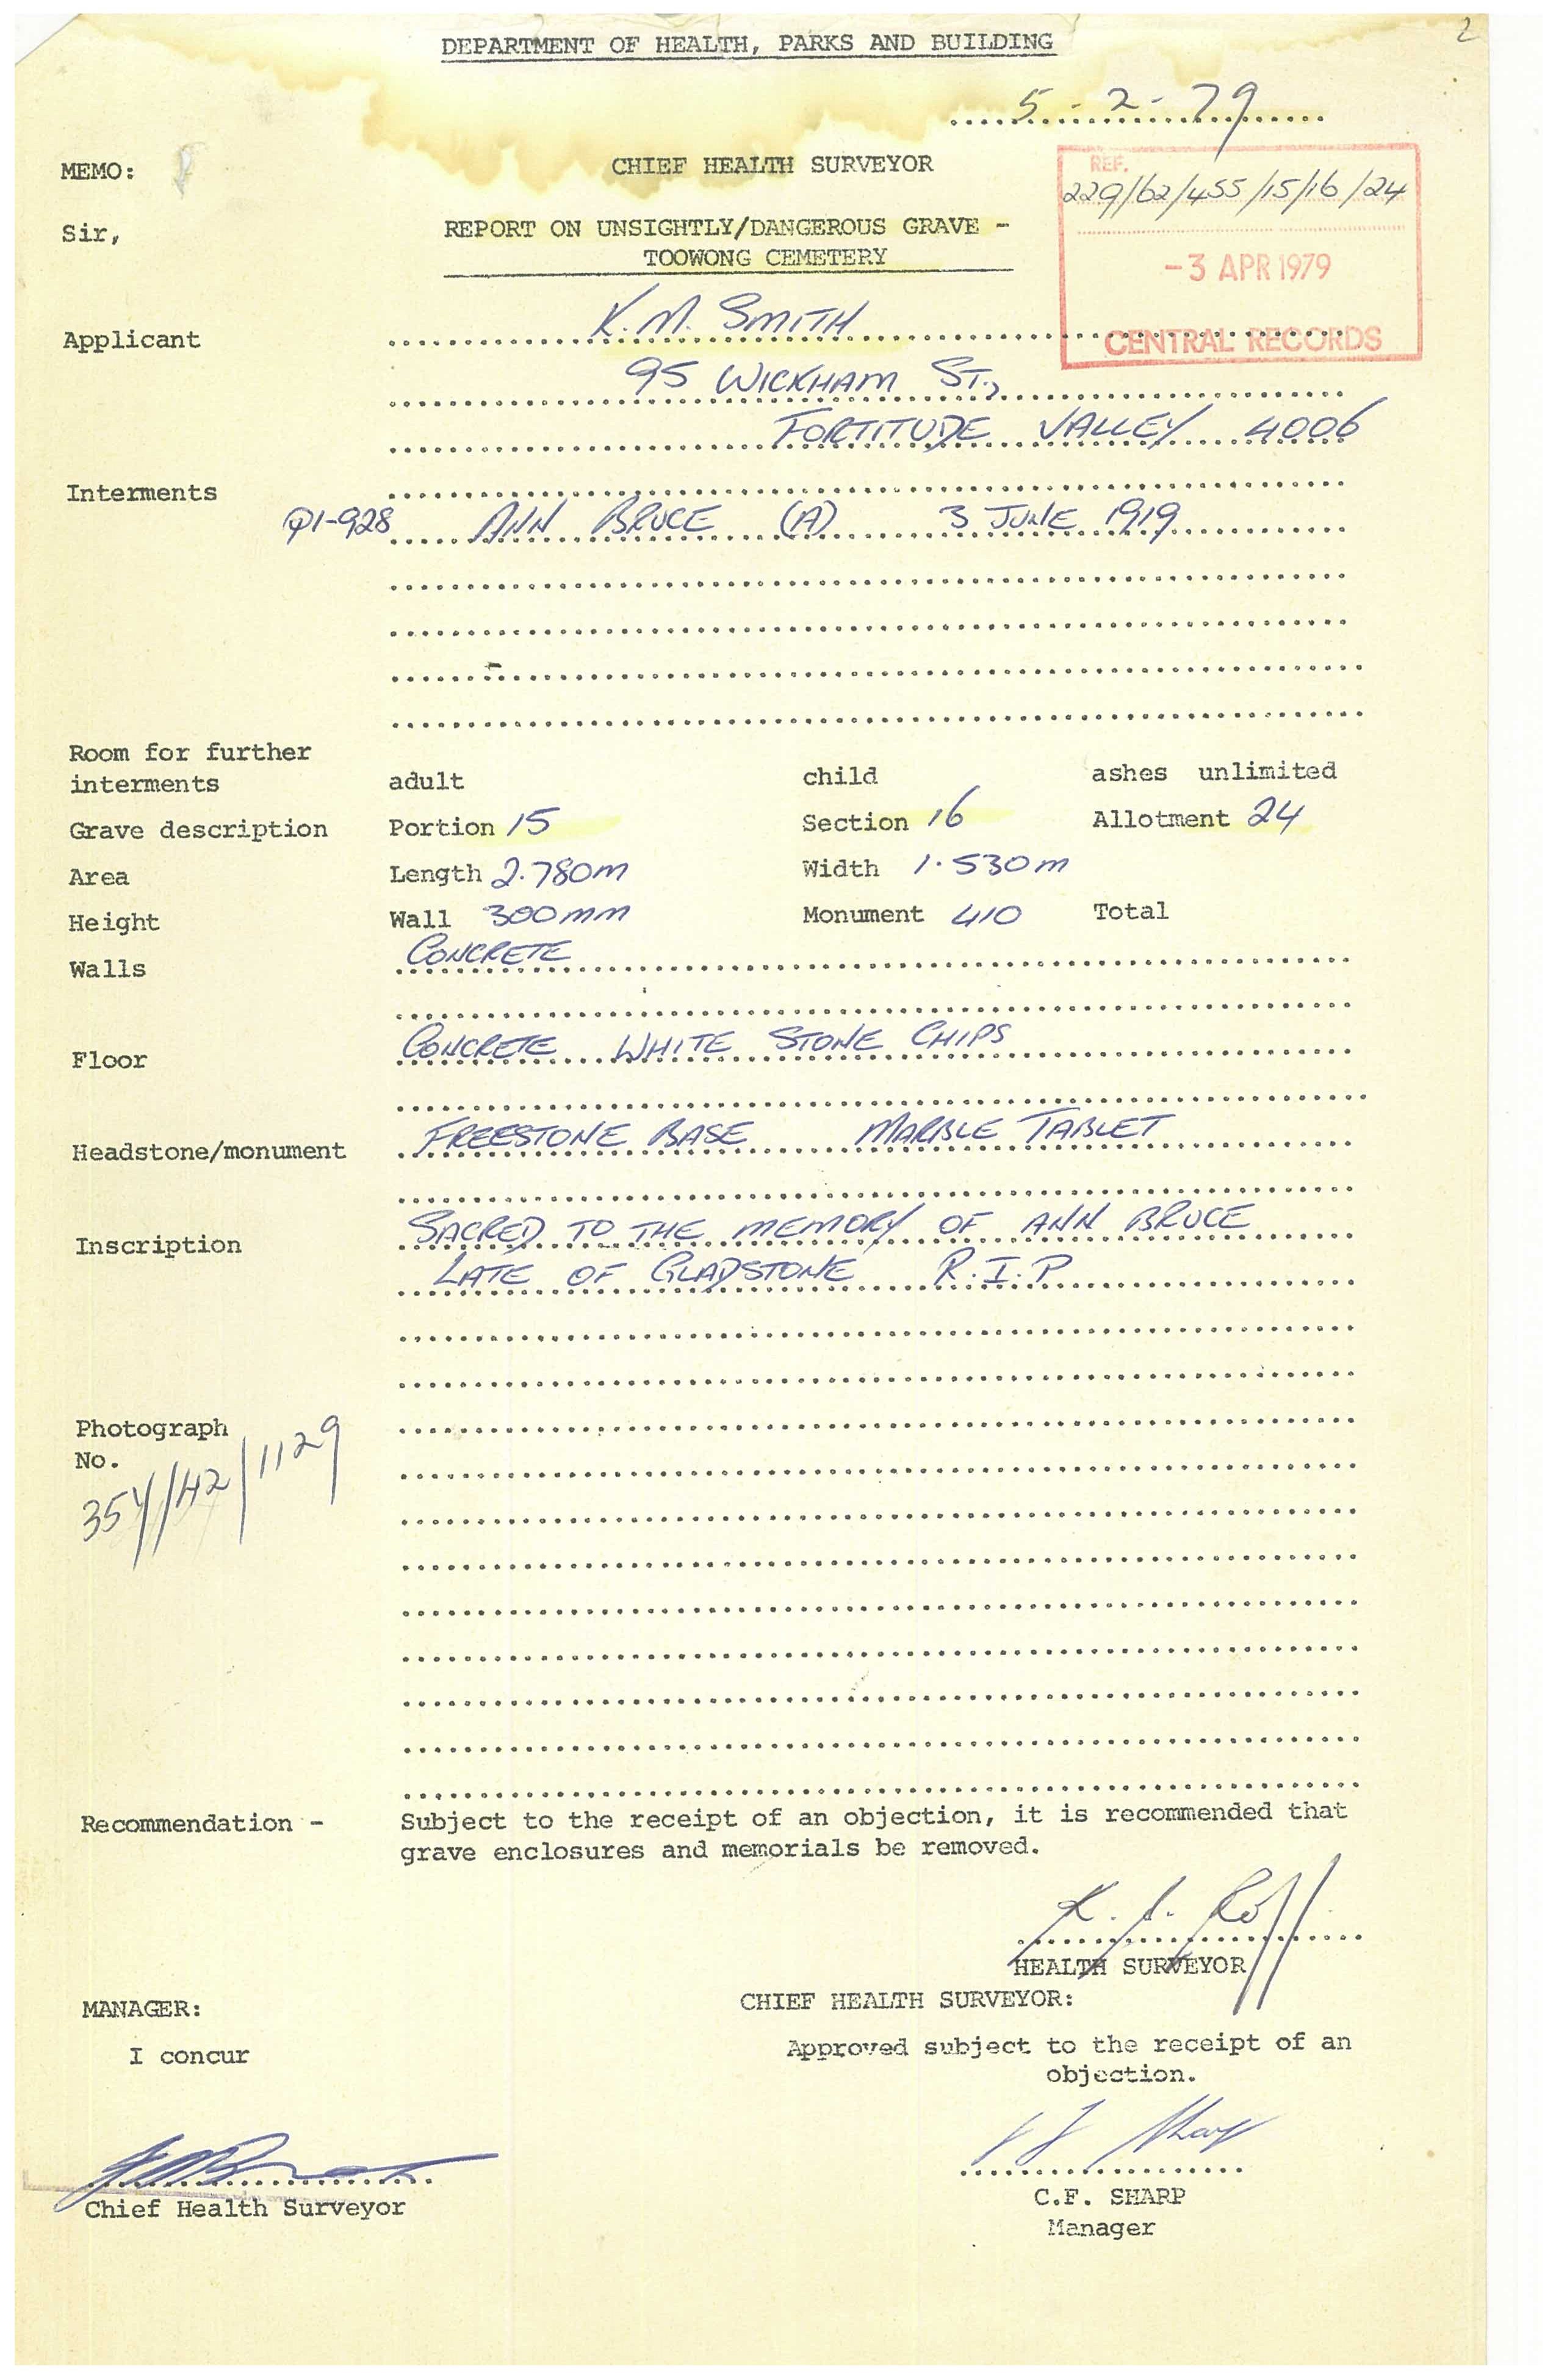 2
DEPARTMENT OF HEALTH, PARKS AND BUILDING
5-2-79
MEMO:
CHIEF HEALTH SURVEYOR
REF.
229/62/455/15/16/24
Sir,
REPORT ON UNSIGHTLY/DANGEROUS GRAVE -
TOOWONG CEMETERY
-3 APR 1979
CENTRAL RECORDS
Applicant K.M. SMITH
95 WICKHAM ST.,
FORTITUDE VALLEY 4006
Interments
ANN BRUCE (A) 3 JUNE 1919
Room for further
interments adult child ashes unlimited
Grave description Portion 15 Section 16 Allotment 24
Area Length 2.780m Width 1.530m
Height Wall 300mm Monument 410 Total
Walls CONCRETE
Floor CONCRETE WHITE STONE CHIPS
Headstone/monument FREESTONE BASE MARBLE TABLET
Inscription SACRED TO THE MEMORY OF ANN BRUCE
LATE OF GLADSTONE R.I.P.
Photograph
No.
354/42/1129
Recommendation - Subject to the receipt of an objection, it is recommended that
grave enclosures and memorials be removed.
HEALTH SURVEYOR
MANAGER:
CHIEF HEALTH SURVEYOR:
I concur
Approved subject to the receipt of an
objection.
Chief Health Surveyor
C.F. SHARP
Manager